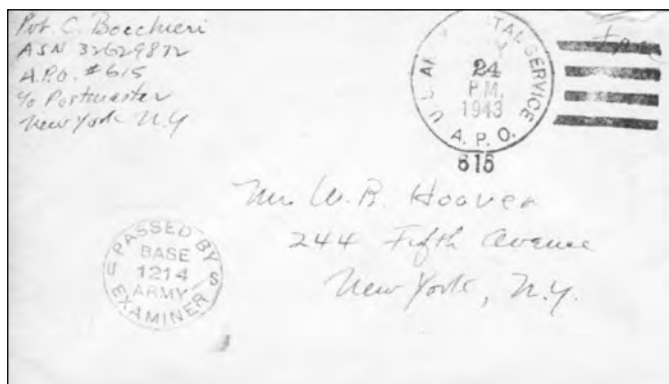 Pvt. C. Bocchieri
ASN 32629872
A.P.O. #615
c/o Postmaster
New York N.Y
Free
U.S. ARMY POSTAL SERVICE
24
P.M.
1943
A. P. O.
615
Mr. W. B. Hoover
244 Fifth Avenue
New York, N.Y.
PASSED BY
U BASE S
1214
ARMY
EXAMINER